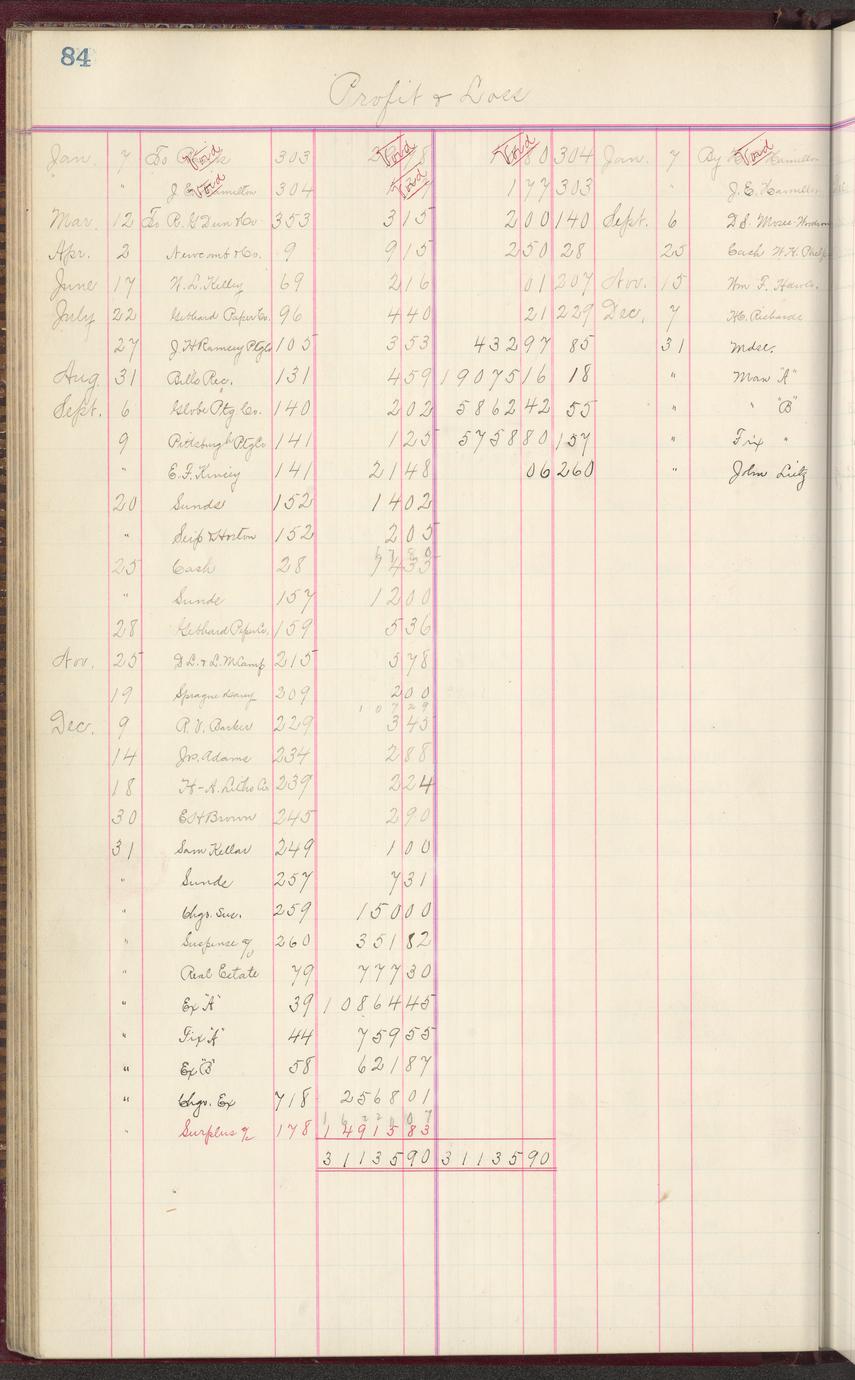 84
Profit & Loss
Jan. 7 To Void 303 Void Void 80 304 Jan. 7 By Void Hamilton
" J. E. Hamilton Void 304 Void 1 77 303 " J. E. Hamilton
Mar. 12 To R. G Dun & Co 353 3 15 2 00 140 Sept. 6 D. S. Morse
Apr. 2 Newcomb & Co. 9 9 15 2 50 28 25 Cash W. H.
June 17 W. L. Killey 69 2 16 01 207 Nov. 15 Wm F.
July 22 Gebhard Paper Co. 96 4 40 21 229 Dec. 7 H. C. Richards
27 J. H Ramsey Ptg Co 105 3 53 432 97 85 31 Mdse.
Aug 31 Bills Rec. 131 4 59 19075 16 18 " Man "A"
Sept. 6 Globe Ptg Co. 140 2 02 5862 42 55 " " "B"
9 Pittsburgh Ptg Co 141 1 25 5758 80 157 " Fix "
" E. F. Kinsey 141 21 48 06 260 " John Lutz
20 Sunds 152 14 02
" Seip & Horton 152 2 05
25 Cash 28 67 80
" Sunds 157 12 00
28 Gebhard Paper Co. 159 5 36
Nov. 25 D L. & L. M Camp 215 5 78
19 Sprague 209 2 00
107 29
Dec. 9 R. V. Barker 229 3 45
14 Jos. Adams 234 2 88
18 H-A. Litho Co 239 2 24
30 E H Brown 245 2 90
31 Sam Kellar 249 1 00
" Sunds 257 7 31
" Chgs. Sus. 259 150 00
" Suspense a/c 260 351 82
" Real Estate 79 777 30
" Ex "A" 39 10864 45
" Fix "A" 44 759 55
" Ex "B" 58 621 87
" Chgs. Ex 718 2568 01
16220 07
" Surplus a/c 178 14915 83
31135 90 31135 90